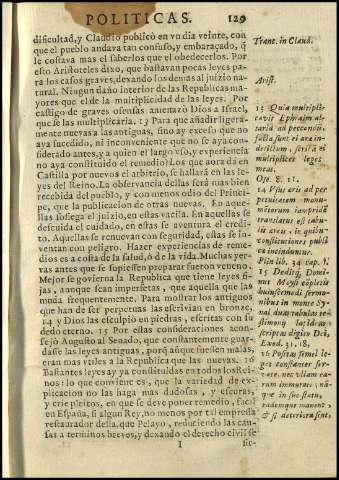 POLITICAS. 129
dificultad, y Claudio publicò en vn dia veinte, con
que el pueblo andava tan confuso, y embaraçado, q̃
le costava mas el saberlos que el obedecerlos. Por
esto Aristoteles dixo, que bastavan pocas leyes pa-
ra los casos graves, dexando los demas al juizio na-
tural. Ningun daño interior de las Republicas ma-
yores que el de la multiplicidad de las leyes. Por
castigo de graves ofensas amenazò Dios a Israel,
que se las multiplicaria. 13 Para que añadir ligera-
mente nuevas a las antiguas, sino ay excesso que no
aya sucedido, ni inconveniente que no se aya con-
siderado antes, y a quien el largo vso, y experiencia
no aya constituido el remedio? Los que aora dà en
Castilla por nuevos el arbitrio, se hallarà en las le-
yes del Reino. La observancia dellas serà mas bien
recebida del pueblo, y con menos odio del Princi-
pe, que la publicacion de otras nuevas. En aque-
llas sossiega el juizio, en estas vacila. En aquellas se
descuida el cuidado, en estas se aventura el credi-
to. Aquellas se renovan con seguridad, estas se in-
ventan con peligro. Hazer experiencias de reme-
dios es a costa de la salud, ò de la vida. Muchas yer-
vas antes que se supiessen preparar fueron veneno.
Mejor se govierna la Republica que tiene leyes fi-
jas, aunque sean imperfetas, que aquella que las
muda frequentemente. Para mostrar los antiguos
que han de ser perpetuas las escrivian en bronze,
14 y Dios las esculpiò en piedras, escritas con su
dedo eterno. 15 Por estas consideraciones acon-
sejò Augusto al Senado, que constantemente guar-
dasse las leyes antiguas, porq̃ aunque fuessen malas,
eran mas vtiles a la Republica que las nuevas. 16
Bastantes leyes ay ya constituidas en todos los Rei-
nos: lo que conviene es, que la variedad de ex-
plicacion no las haga mas dudosas, y escuras,
y crie pleitos, en que se deve poner remedio, facil
en España, si algun Rey, no menos por tal empressa
restaurador della, que Pelayo, reduciendo las cau-
sas a terminos breves, y dexando el derecho civil se
I
sir-
Tranc. in Claud.
Arist.
13 Quia multipli-
cavit Ephraim al-
taria ad peccandũ:
facta sunt ei arae in
delictum, scribã ei
multiplices leges
meas.
Ose. 8. 11.
14 Usus aris ad per
petuitatem monu-
mentorum iampridã
translatus est tabu-
lis areis, in quibus
constitutiones publi
cae inciduntur.
Plin. lib. 34. cap. 9.
15 Deditq; Domi-
nus Moysi expletis
huiuscemodi sermo-
nibus in monte Sy-
nai duas tabulas te-
stimony lapideas
scriptas digito Dei.
Exod. 31. 18.
16 Positas semel le-
ges constanter ser-
vate, nec vllam ea-
rum immutate: nã
quae in suo statu,
eademque manent,
& si deteriora sint,